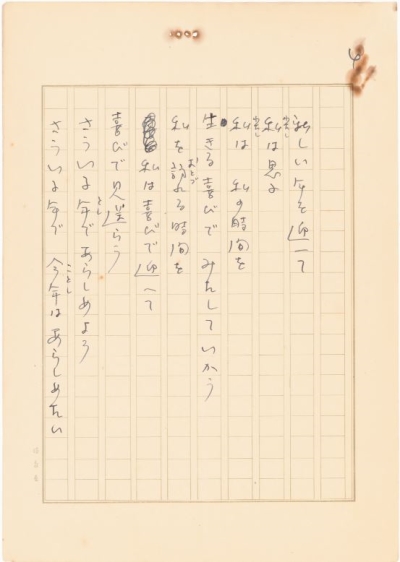 4
新しい年を迎へて
私は思ふ
私は 私の時間を
生きる喜びで みたしていかう
私を訪れる時間を
おとづ
私は喜びで迎へて
喜びで見送らう
さういふ年であらしめよう
とし
さういふ年で 今年はあらしめたい
ことし